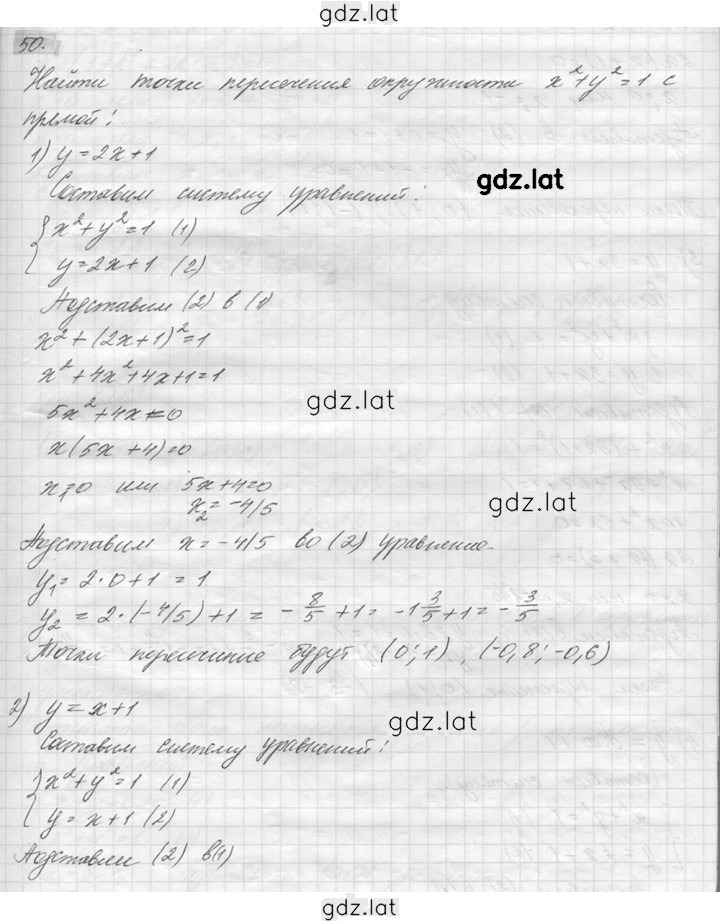 gdz.lat
50.
Найти точки пересечения окружности x²+y²=1 с
прямой:
1) y=2x+1
gdz.lat
Составим систему уравнений:
{x²+y²=1 (1)
y=2x+1 (2)
Подставим (2) в (1)
x²+(2x+1)²=1
x²+4x²+4x+1=1
gdz.lat
5x²+4x=0
x(5x+4)=0
x₁=0 или 5x+4=0
gdz.lat
x₂=-4/5
Подставим x=-4/5 во (2) уравнение
y₁=2·0+1=1
y₂=2·(-4/5)+1=-8/5+1=-1 3/5+1=-3/5
Точки пересичиние будут (0;1), (-0,8;-0,6)
2) y=x+1
gdz.lat
Составим систему уравнений:
{x²+y²=1 (1)
y=x+1 (2)
Подставлеи (2) в(1)
gdz.lat